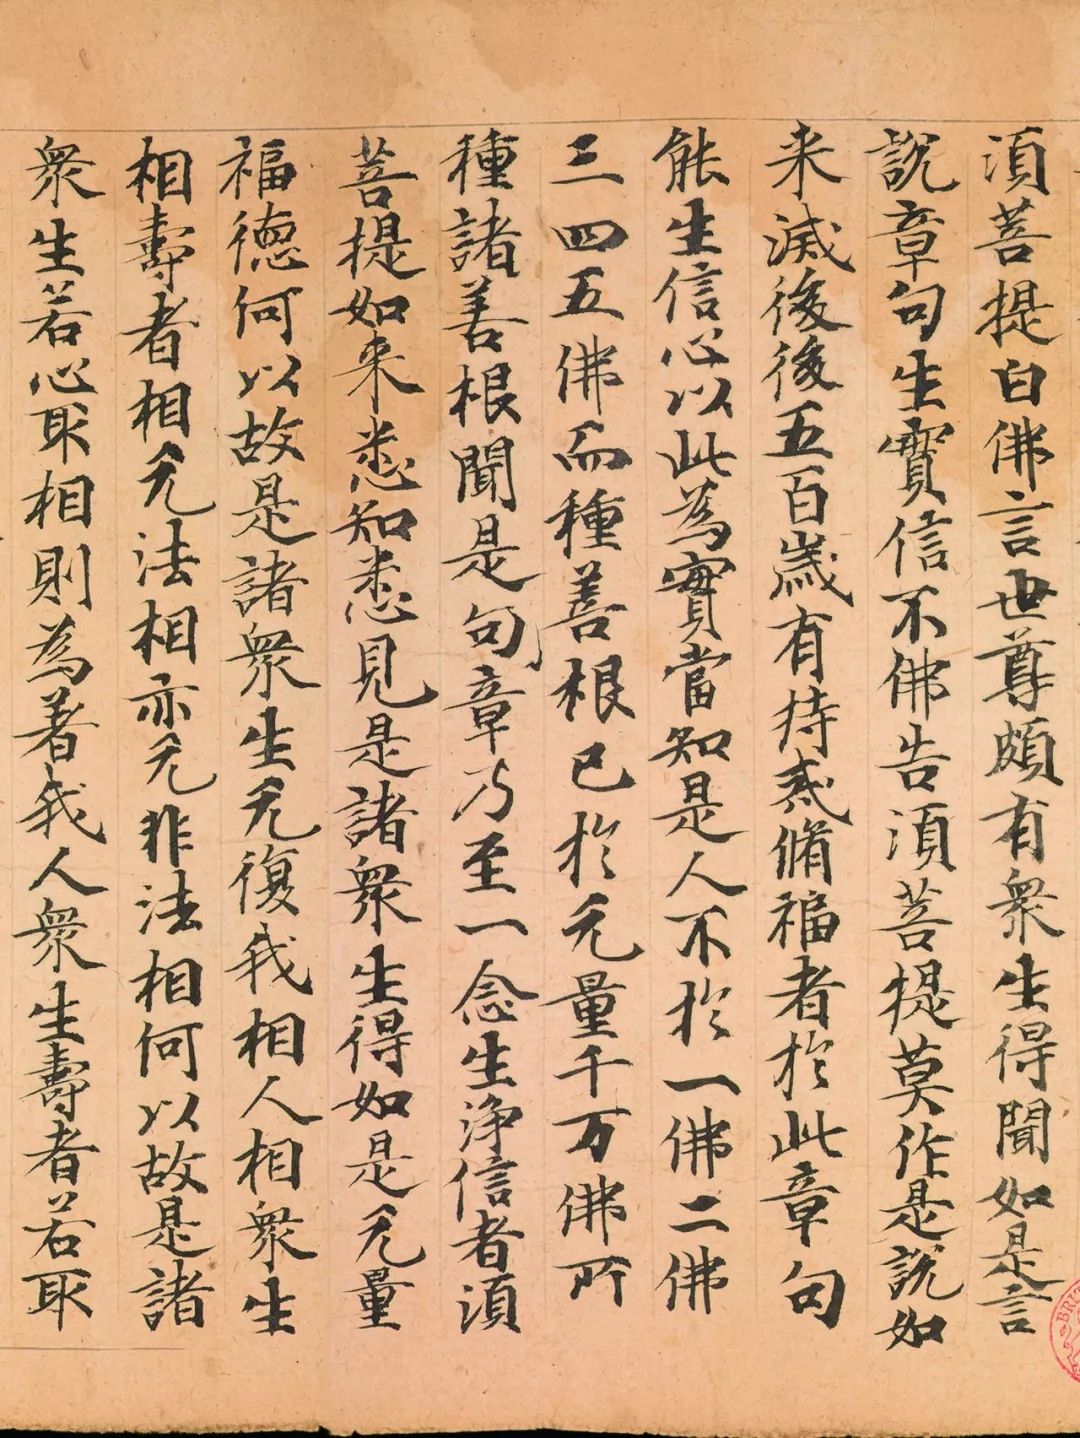 須菩提白佛言世尊頗有衆生得聞如是言
說章句生實信不佛告須菩提莫作是說如
来滅後後五百歲有持戒脩福者於此章句
能生信心以此為實當知是人不於一佛二佛
三四五佛而種善根已於无量千万佛所
種諸善根聞是句章乃至一念生淨信者須
菩提如来悉知悉見是諸衆生得如是无量
福德何以故是諸衆生无復我相人相衆生
相壽者相无法相亦无非法相何以故是諸
衆生若心取相則為著我人衆生壽者若取